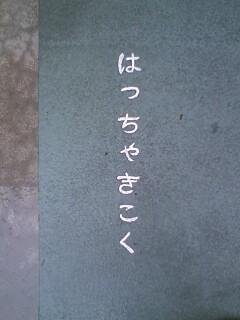 はっちゃきこく